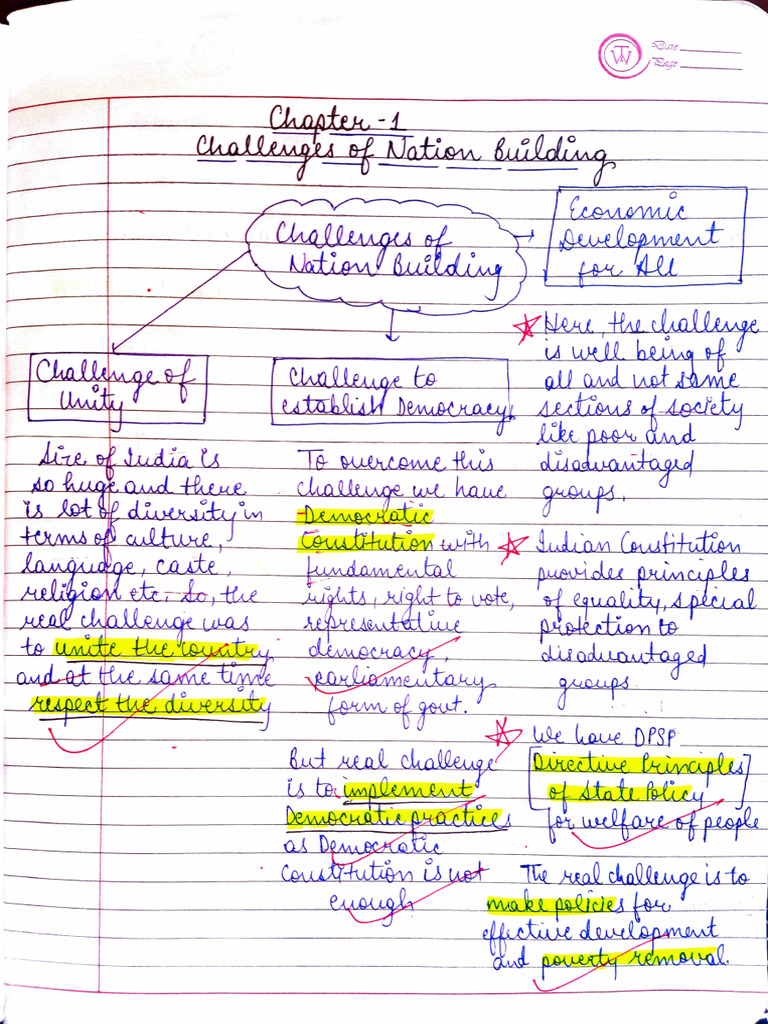 TW
Date
Page
Chapter-1
Challenges of Nation Building
Challenges of
Nation Building
Economic
Development
for All
Challenge of
Unity
Challenge to
establish Democracy
Size of India is
so huge and there
is lot of diversity in
terms of culture,
language, caste,
religion etc. So, the
real challenge was
to unite the country
and at the same time
respect the diversity
To overcome this
challenge we have
Democratic
Constitution with
fundamental
rights, right to vote,
representative
democracy,
parliamentary
form of govt.
But real challenge
is to implement
Democratic practices
as Democratic
Constitution is not
enough
Here, the challenge
is well being of
all and not some
sections of society
like poor and
disadvantaged
groups.
Indian Constitution
provides principles
of equality, special
protection to
disadvantaged
groups
We have DPSP
[Directive Principles
of State Policy]
for welfare of people
The real challenge is to
make policies for
effective development
and poverty removal.